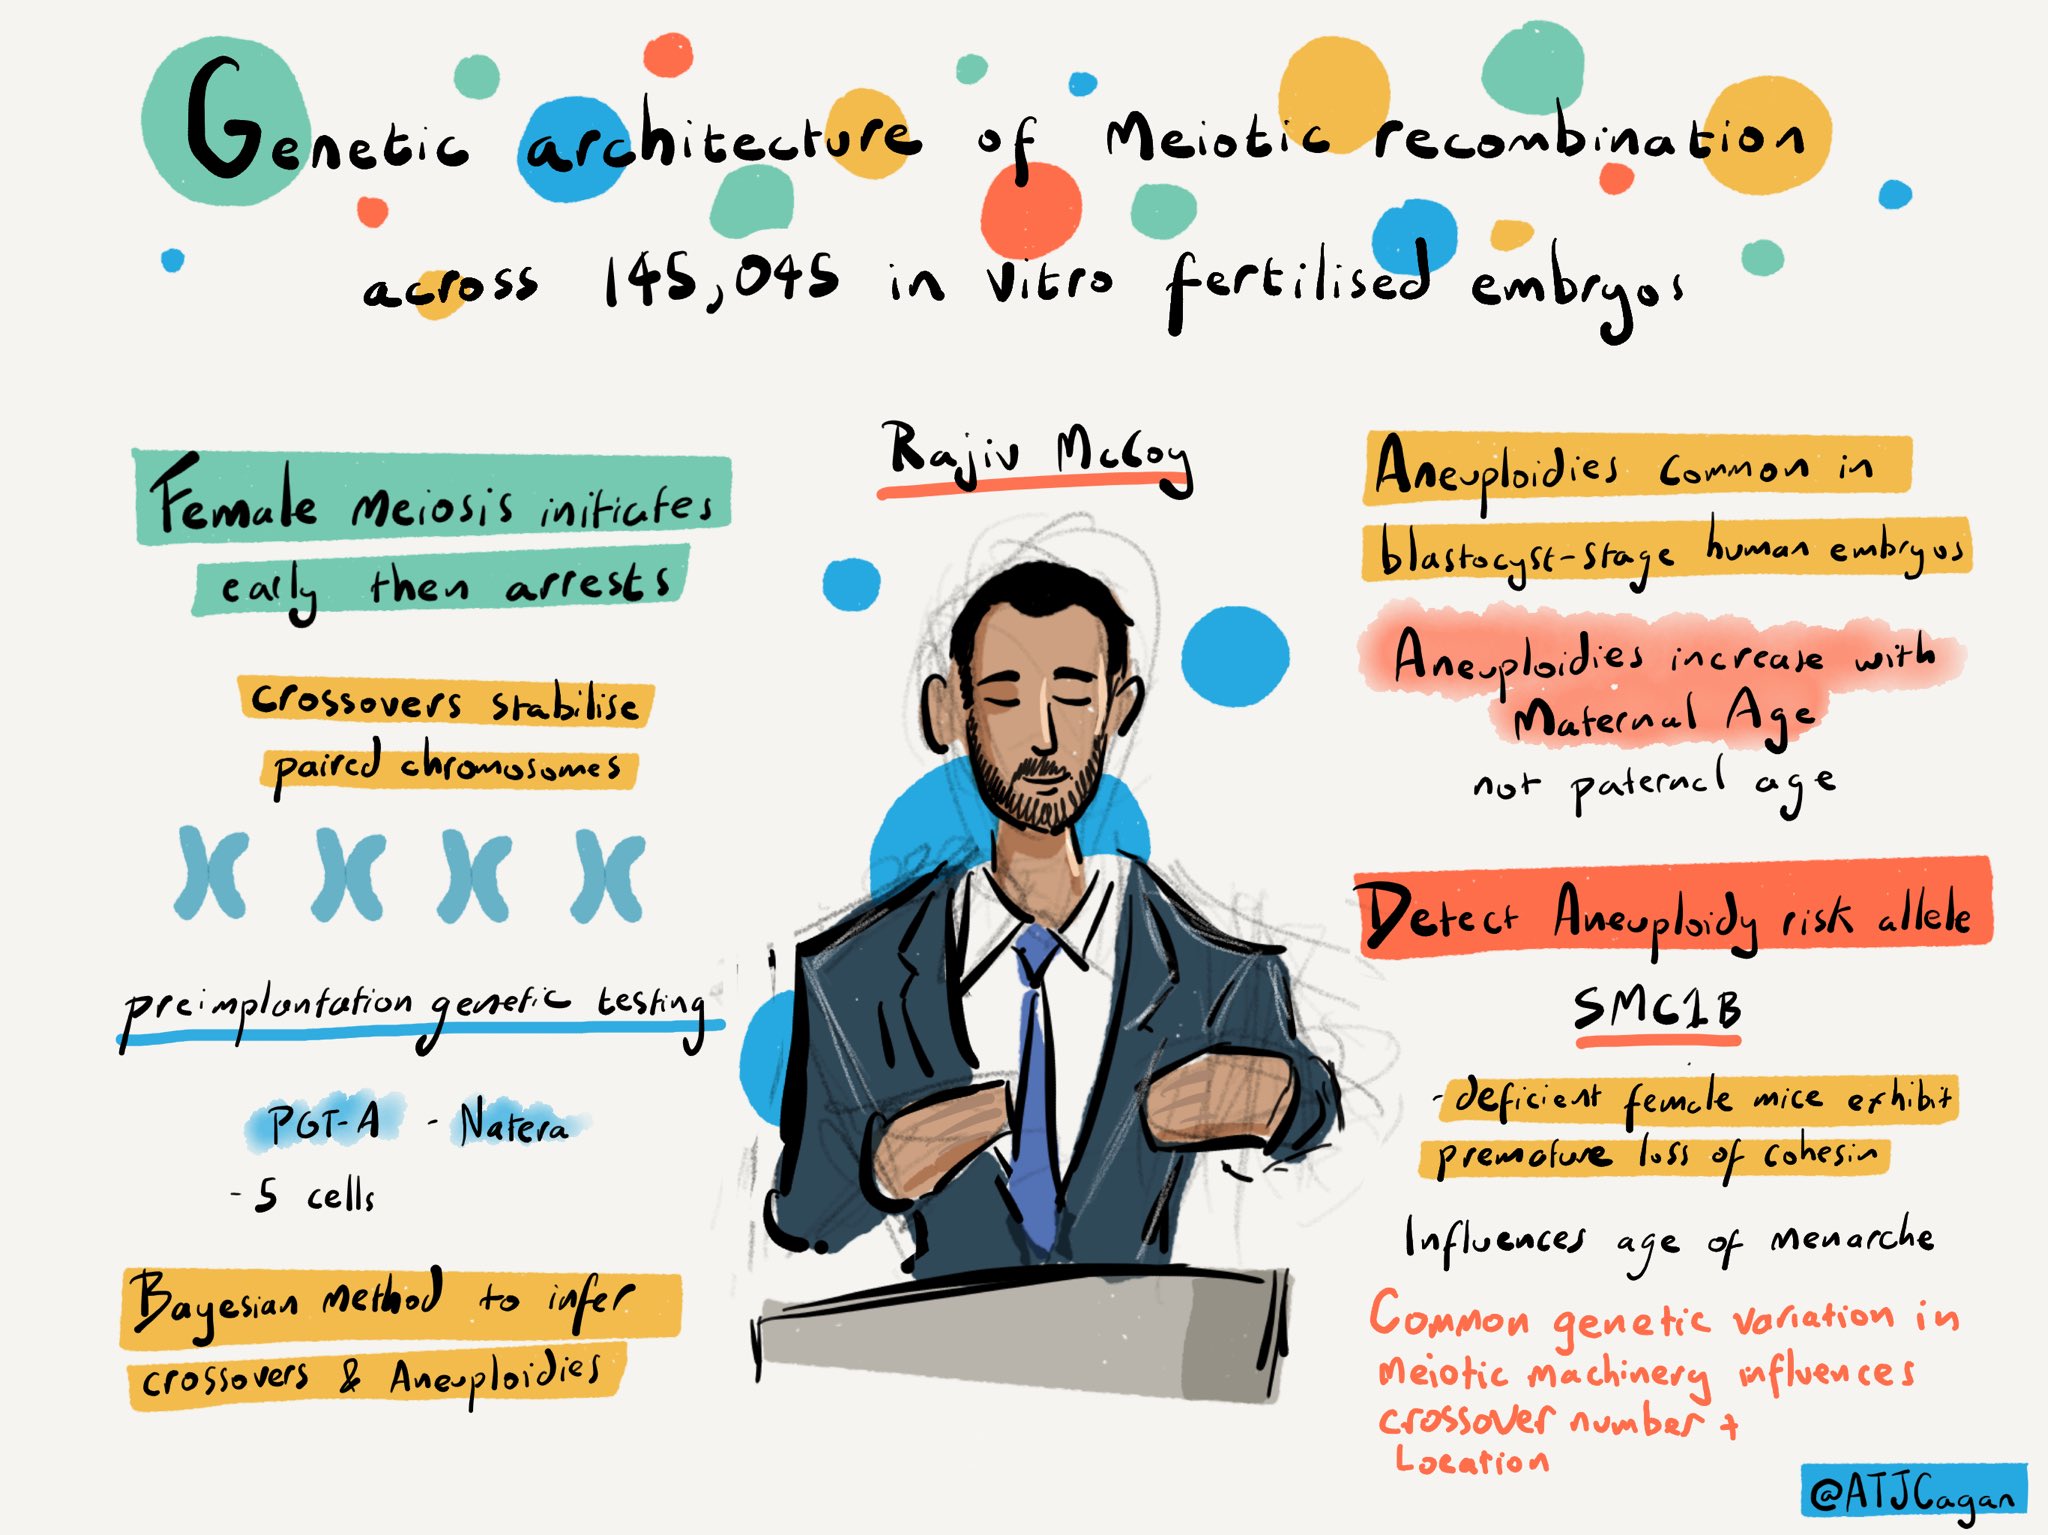 Genetic architecture of Meiotic recombination
across 145,045 in vitro fertilised embryos
Rajiv McCoy
Female meiosis initiates
early then arrests
crossovers stabilise
paired chromosomes
preimplantation genetic testing
PGT-A - Natera
- 5 cells
Bayesian method to infer
crossovers & Aneuploidies
Aneuploidies common in
blastocyst-stage human embryos
Aneuploidies increase with
Maternal Age
not paternal age
Detect Aneuploidy risk allele
SMC1B
- deficient female mice exhibit
premature loss of cohesin
Influences age of menarche
Common genetic variation in
meiotic machinery influences
crossover number +
Location
@ATJCagan